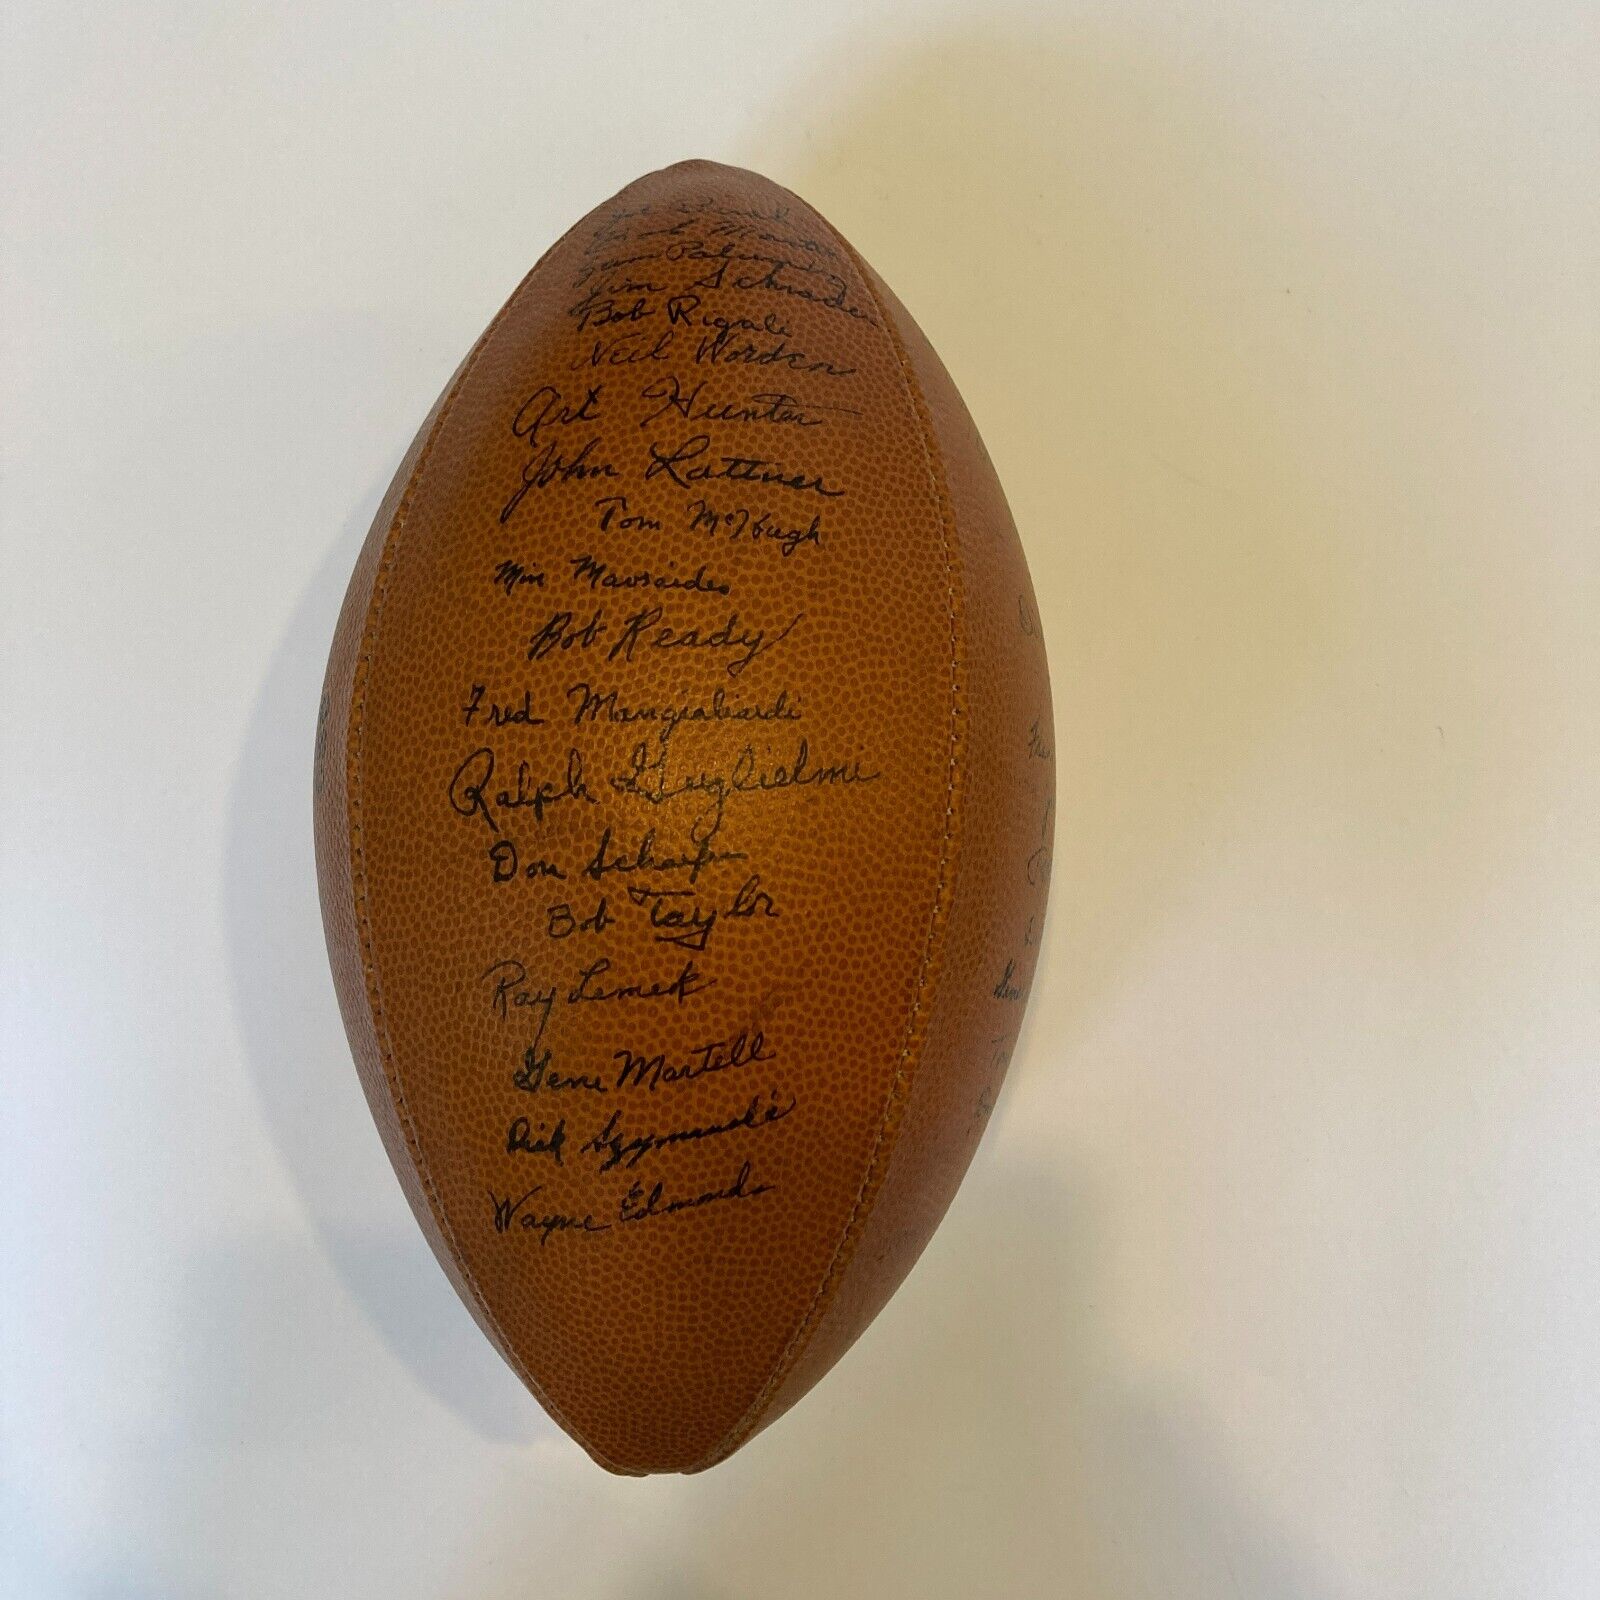 Jim Schrader
Bob Rigali
Neil Worden
Art Hunter
John Lattner
Tom McHugh
Min Mavraides
Bob Ready
Fred Mangialardi
Ralph Guglielmi
Don Schaefer
Bob Taylor
Ray Lemek
Gene Martell
Dick Szymanski
Wayne Edmonds
Gene